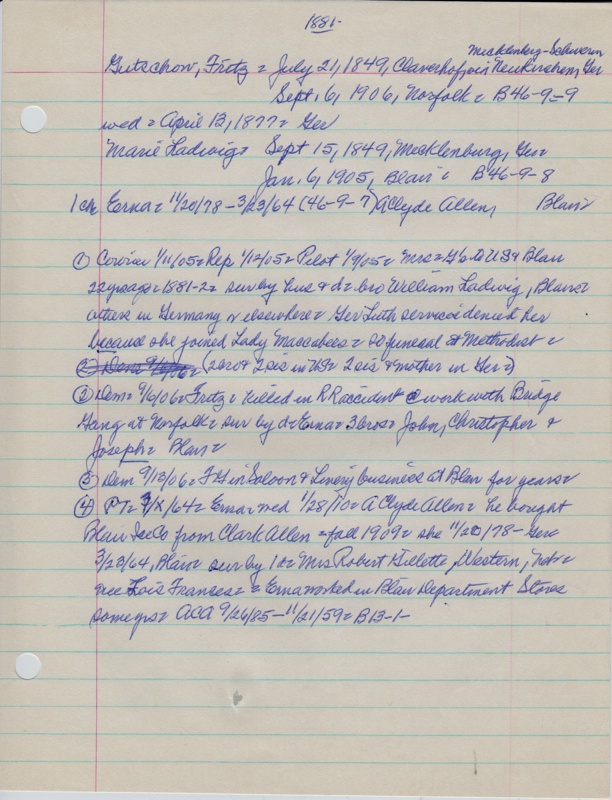 1881-
Mecklenberg-Schwerin
Gutschow, Fritz = July 21, 1849, Claverhof, Neukirchen, Ger
Sept. 6, 1906, Norfolk = B46-9-9
wed = April 13, 1877 = Ger
Marie Ladwig = Sept 15, 1849, Mecklenburg, Ger
Jan. 6, 1905, Blair = B46-9-8
1 ch Erna = 11/20/78 - 3/23/64 (46-9-7) A Clyde Allen, Blair
① Courier 1/11/05 = Rep 1/12/05 = Pilot 1/9/05 = Mrs = G to US & Blair
22 yrs ago = 1881-2 = sur by hus & d = bro William Ladwig, Blair =
others in Germany & elsewhere = Ger Luth services denied her
because she joined Lady Maccabees = so funeral at Methodist =
(2 bro & 2 sis in US = 2 sis & mother in Ger =)
② Dem = 9/6/06 = Fritz = killed in RR accident @ work with Bridge
Gang at Norfolk = sur by d = Erna = 3 bros = John, Christopher &
Joseph = Blair =
③ Dem 9/13/06 = F G in Saloon & Livery business at Blair for years =
④ PT = /64 = Erna = wed 1/28/10 = A Clyde Allen = he bought
Blair Ice Co from Clark Allen = fall 1909 = she 11/20/78 - Ger
3/23/64, Blair = sur by 1 d = Mrs Robert Gillette, Western, Neb =
nee Lois Frances = Erna worked in Blair Department Stores
some yrs = ACA 9/26/85 - 11/21/59 = B13-1-